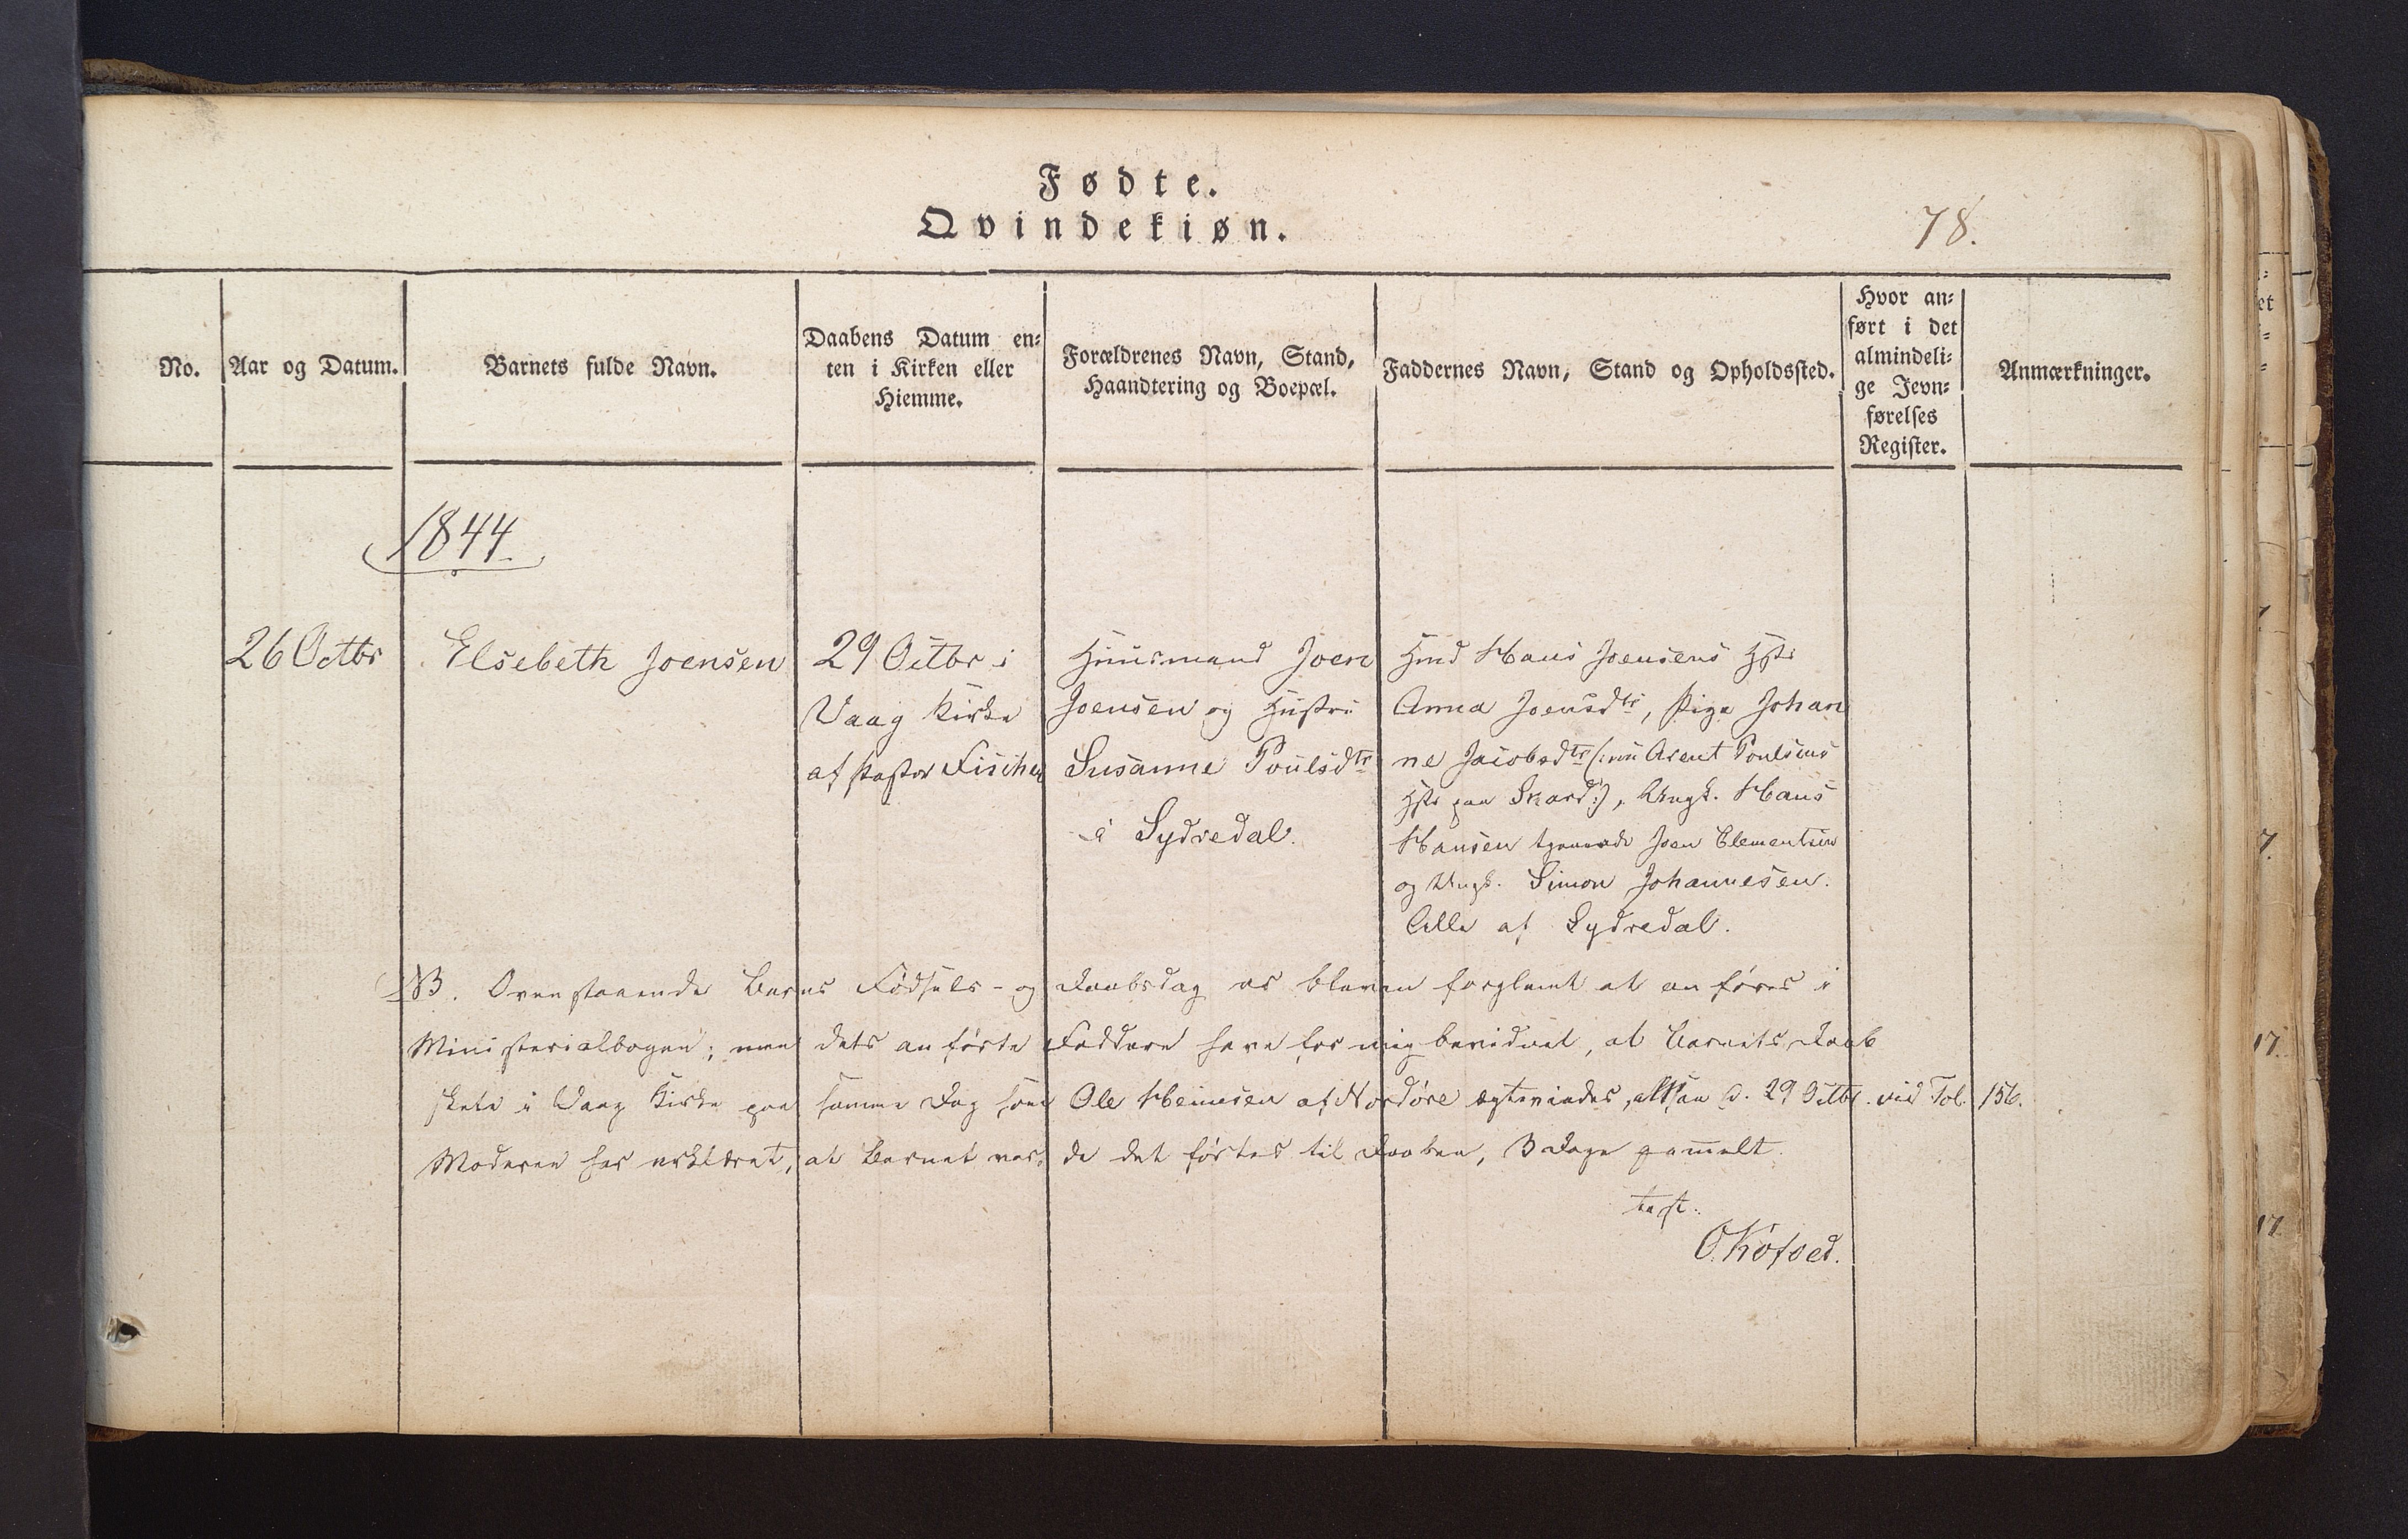 Fødte.
Qvindekiøn.
78.
No.
Aar og Datum.
Barnets fulde Navn.
Daabens Datum en-
ten i Kirken eller
Hiemme.
Forældrenes Navn, Stand,
Haandtering og Boepæl.
Faddernes Navn, Stand og Opholdssted.
Hvor an-
ført i det
almindeli-
ge Jevn-
førelses
Register.
Anmærkninger.
1844
26 Octbr
Elsebeth Joensen
29 Octbr i
Vaag Kirke
af Pastor Fischer
Huusmand Joen
Joensen og Hustru
Susanne Poulsdtr
i Sydredal.
Hmd Hans Joensens Hstr
Anna Joensdtr, Pige Johan
ne Jacobsdtr (: nu Arent Poulsens
Hstr paa Skard :), Ungk. Hans
Hansen tjenende Joen Clementsen
og Ungk. Simon Johannesen.
Alle af Sydredal.
NB. Ovenstaaende Barns Fødsels- og Daabsdag er bleven forglemt at anføres i
Ministerialbogen; men dets anførte Faddere have for mig bevidnet, at Barnets Daab
skete i Vaag Kirke paa samme Dag som Ole Heinesen af Nordöre ægteviedes, altsaa d. 29 Octbr. vid Fol. 156.
Moderen har erklæret, at Barnet var, da det førtes til Daaben, 3 Dage gammelt.
test.
O. Kofoed.
7.
17.
17